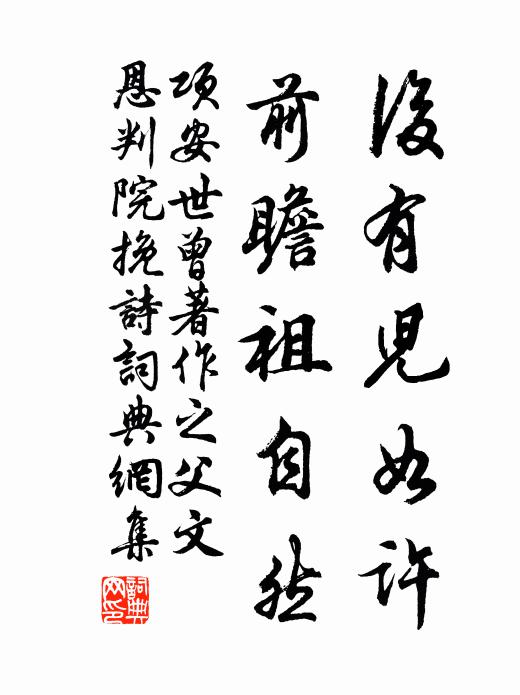 後有兒如許
前瞻祖自然
項安世曾著作之父文
恩判院挽詩詞典網集
詞典
网印